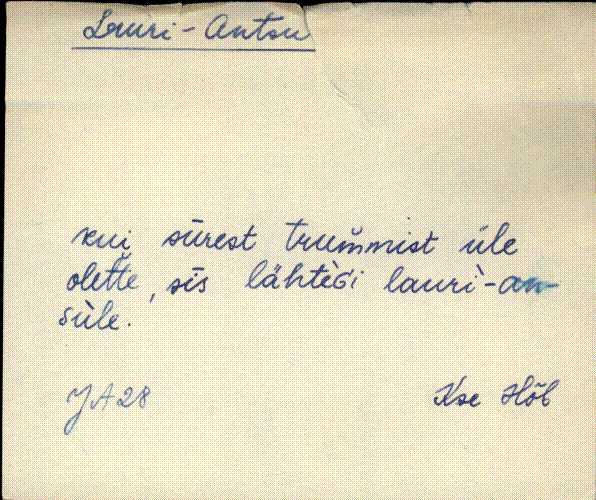 Lauri-Antsu
kui sūrest trum̆mist üle
olet̆te, sīs lähtèGi lauri-an-
sùle.
JA28
Kse Hõb